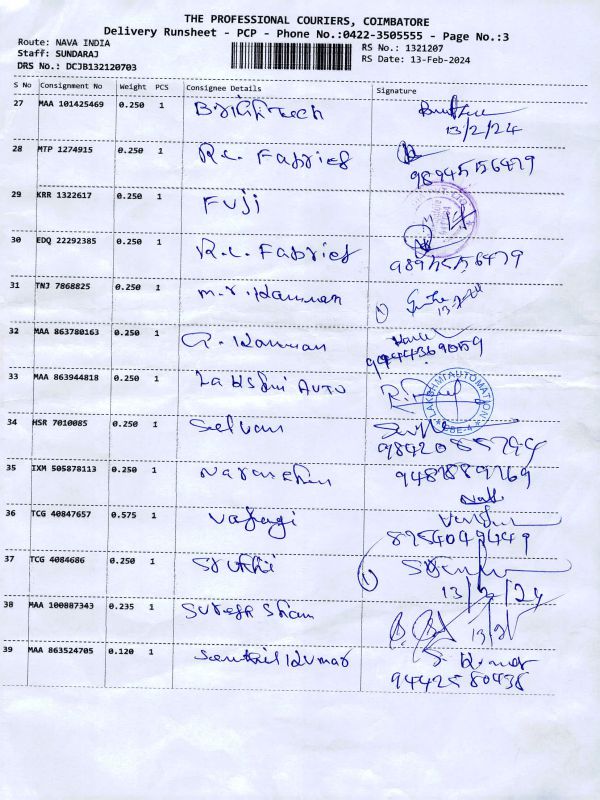 THE PROFESSIONAL COURIERS, COIMBATORE
Delivery Runsheet - PCP - Phone No.:0422-3505555 - Page No.:3
Route: NAVA INDIA
RS No.: 1321207
Staff: SUNDARAJ
RS Date: 13-Feb-2024
DRS No.: DCJB132120703
S No Consignment No Weight PCS Consignee Details Signature
27 MAA 101425469 0.250 1
13/2/24
28 MTP 1274915 0.250 1 R.C. Fabrics
29 KRR 1322617 0.250 1 FUji
30 EDQ 22292385 0.250 1 R.C. Fabrics
31 TNJ 7868825 0.250 1 m.r. Kannan
32 MAA 863780163 0.250 1 Kannan
33 MAA 863944818 0.250 1 AUTO
LAKSHMI AUTOMATION
CBE-4
34 HSR 7010085 0.250 1 Selvam
35 IXM 505878113 0.250 1
36 TCG 40847657 0.575 1
37 TCG 4084686 0.250 1 sruthi
13/2/24
38 MAA 100887343 0.235 1 Suresh
39 MAA 863524705 0.120 1 Senthil Kumar S. Kumar
9442580438